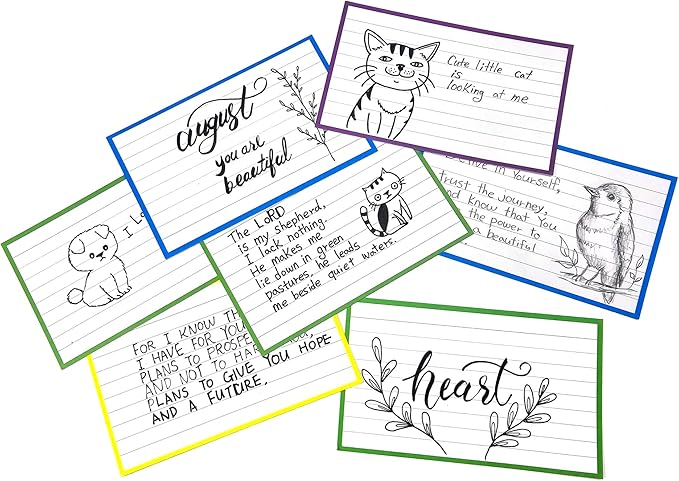 august
you are
beautiful
Cute little cat
is
looking at me
The LoRD
is my shepherd,
I lack nothing.
He makes me
lie down in green
pastures, he leads
me beside quiet waters.
in Yourself,
trust the journey,
and know that you
the power to
a beautiful
I
FOR I KNOW
I HAVE FOR
PLANS TO
AND NOT TO
PLANS TO GIVE YOU HOPE
AND A FUTURE.
heart